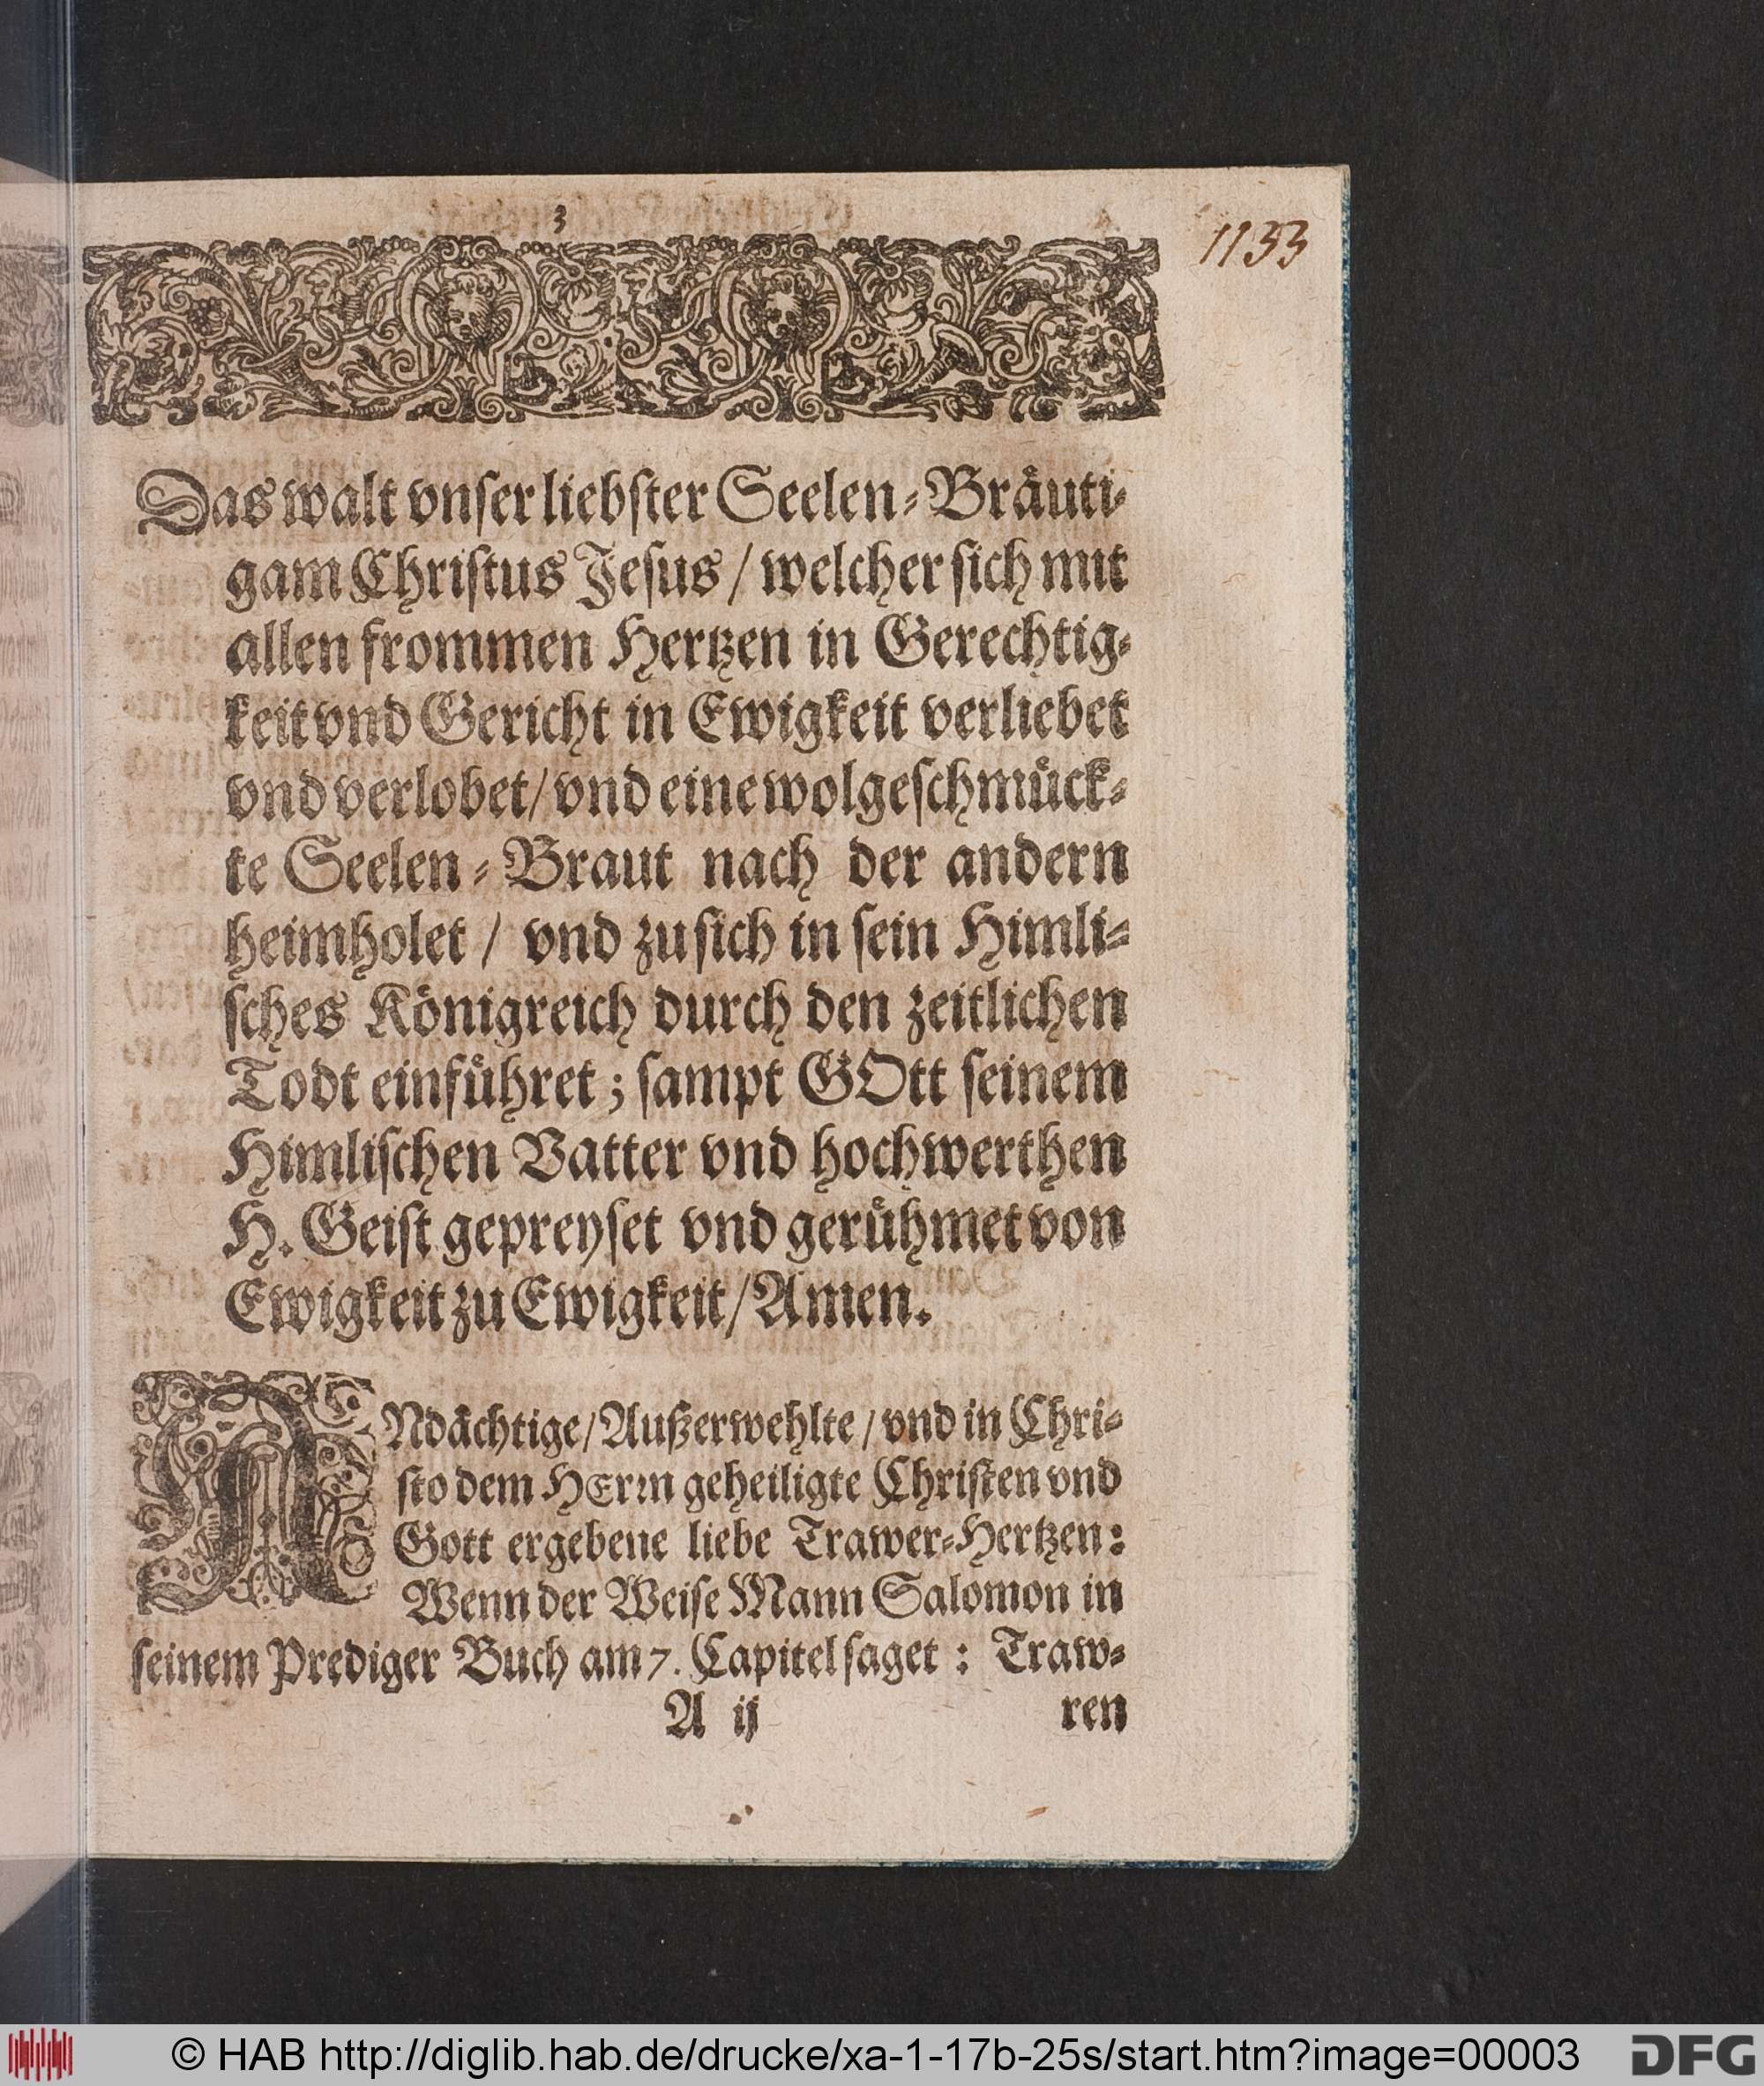 3
1133
Das walt vnser liebster Seelen-Bräuti-
gam Christus Jesus / welcher sich mit
allen frommen Hertzen in Gerechtig-
keit vnd Gericht in Ewigkeit verliebet
vnd verlobet / vnd eine wolgeschmück-
te Seelen-Braut nach der andern
heimholet / vnd zu sich in sein Himli-
sches Königreich durch den zeitlichen
Todt einführet ; sampt GOtt seinem
Himlischen Vatter vnd hochwerthen
H. Geist gepreyset vnd gerühmet von
Ewigkeit zu Ewigkeit / Amen.
ANdächtige / Außerwehlte / vnd in Chri-
sto dem HErrn geheiligte Christen vnd
Gott ergebene liebe Trawer-Hertzen:
Wenn der Weise Mann Salomon in
seinem Prediger Buch am 7. Capitel saget : Traw-
A ij ren
© HAB http://diglib.hab.de/drucke/xa-1-17b-25s/start.htm?image=00003
DFG